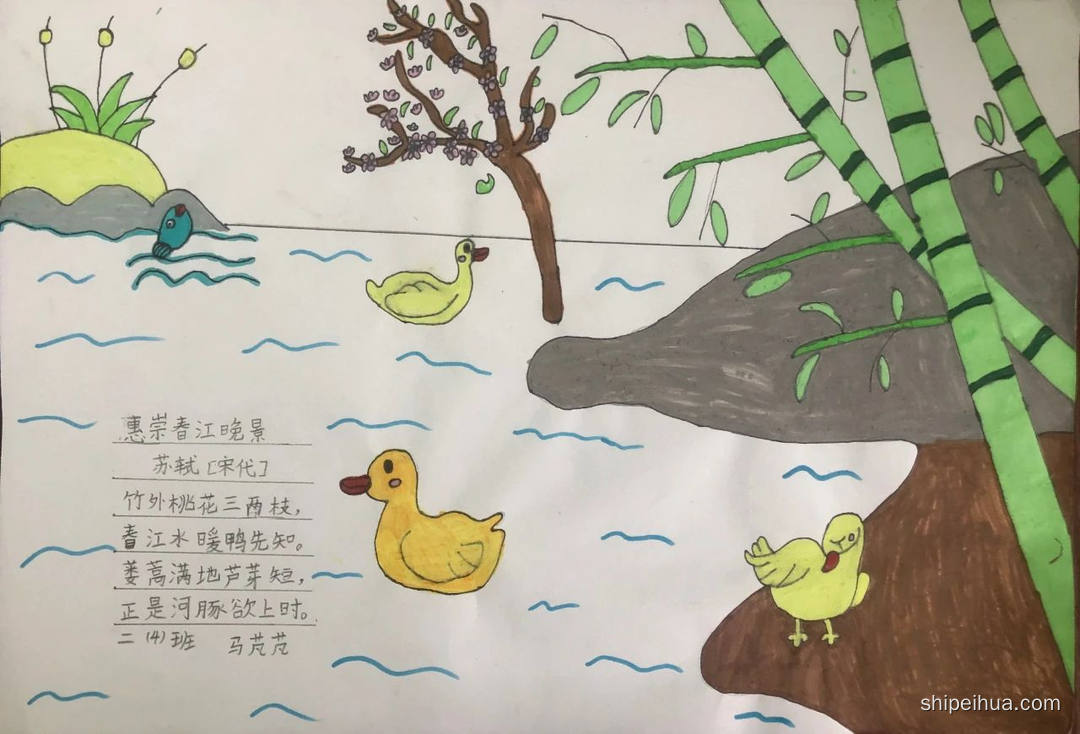 惠崇春江晚景
苏轼[宋代]
竹外桃花三两枝，
春江水暖鸭先知。
蒌蒿满地芦芽短，
正是河豚欲上时。
二(4)班 马芃芃
shipeihua.com